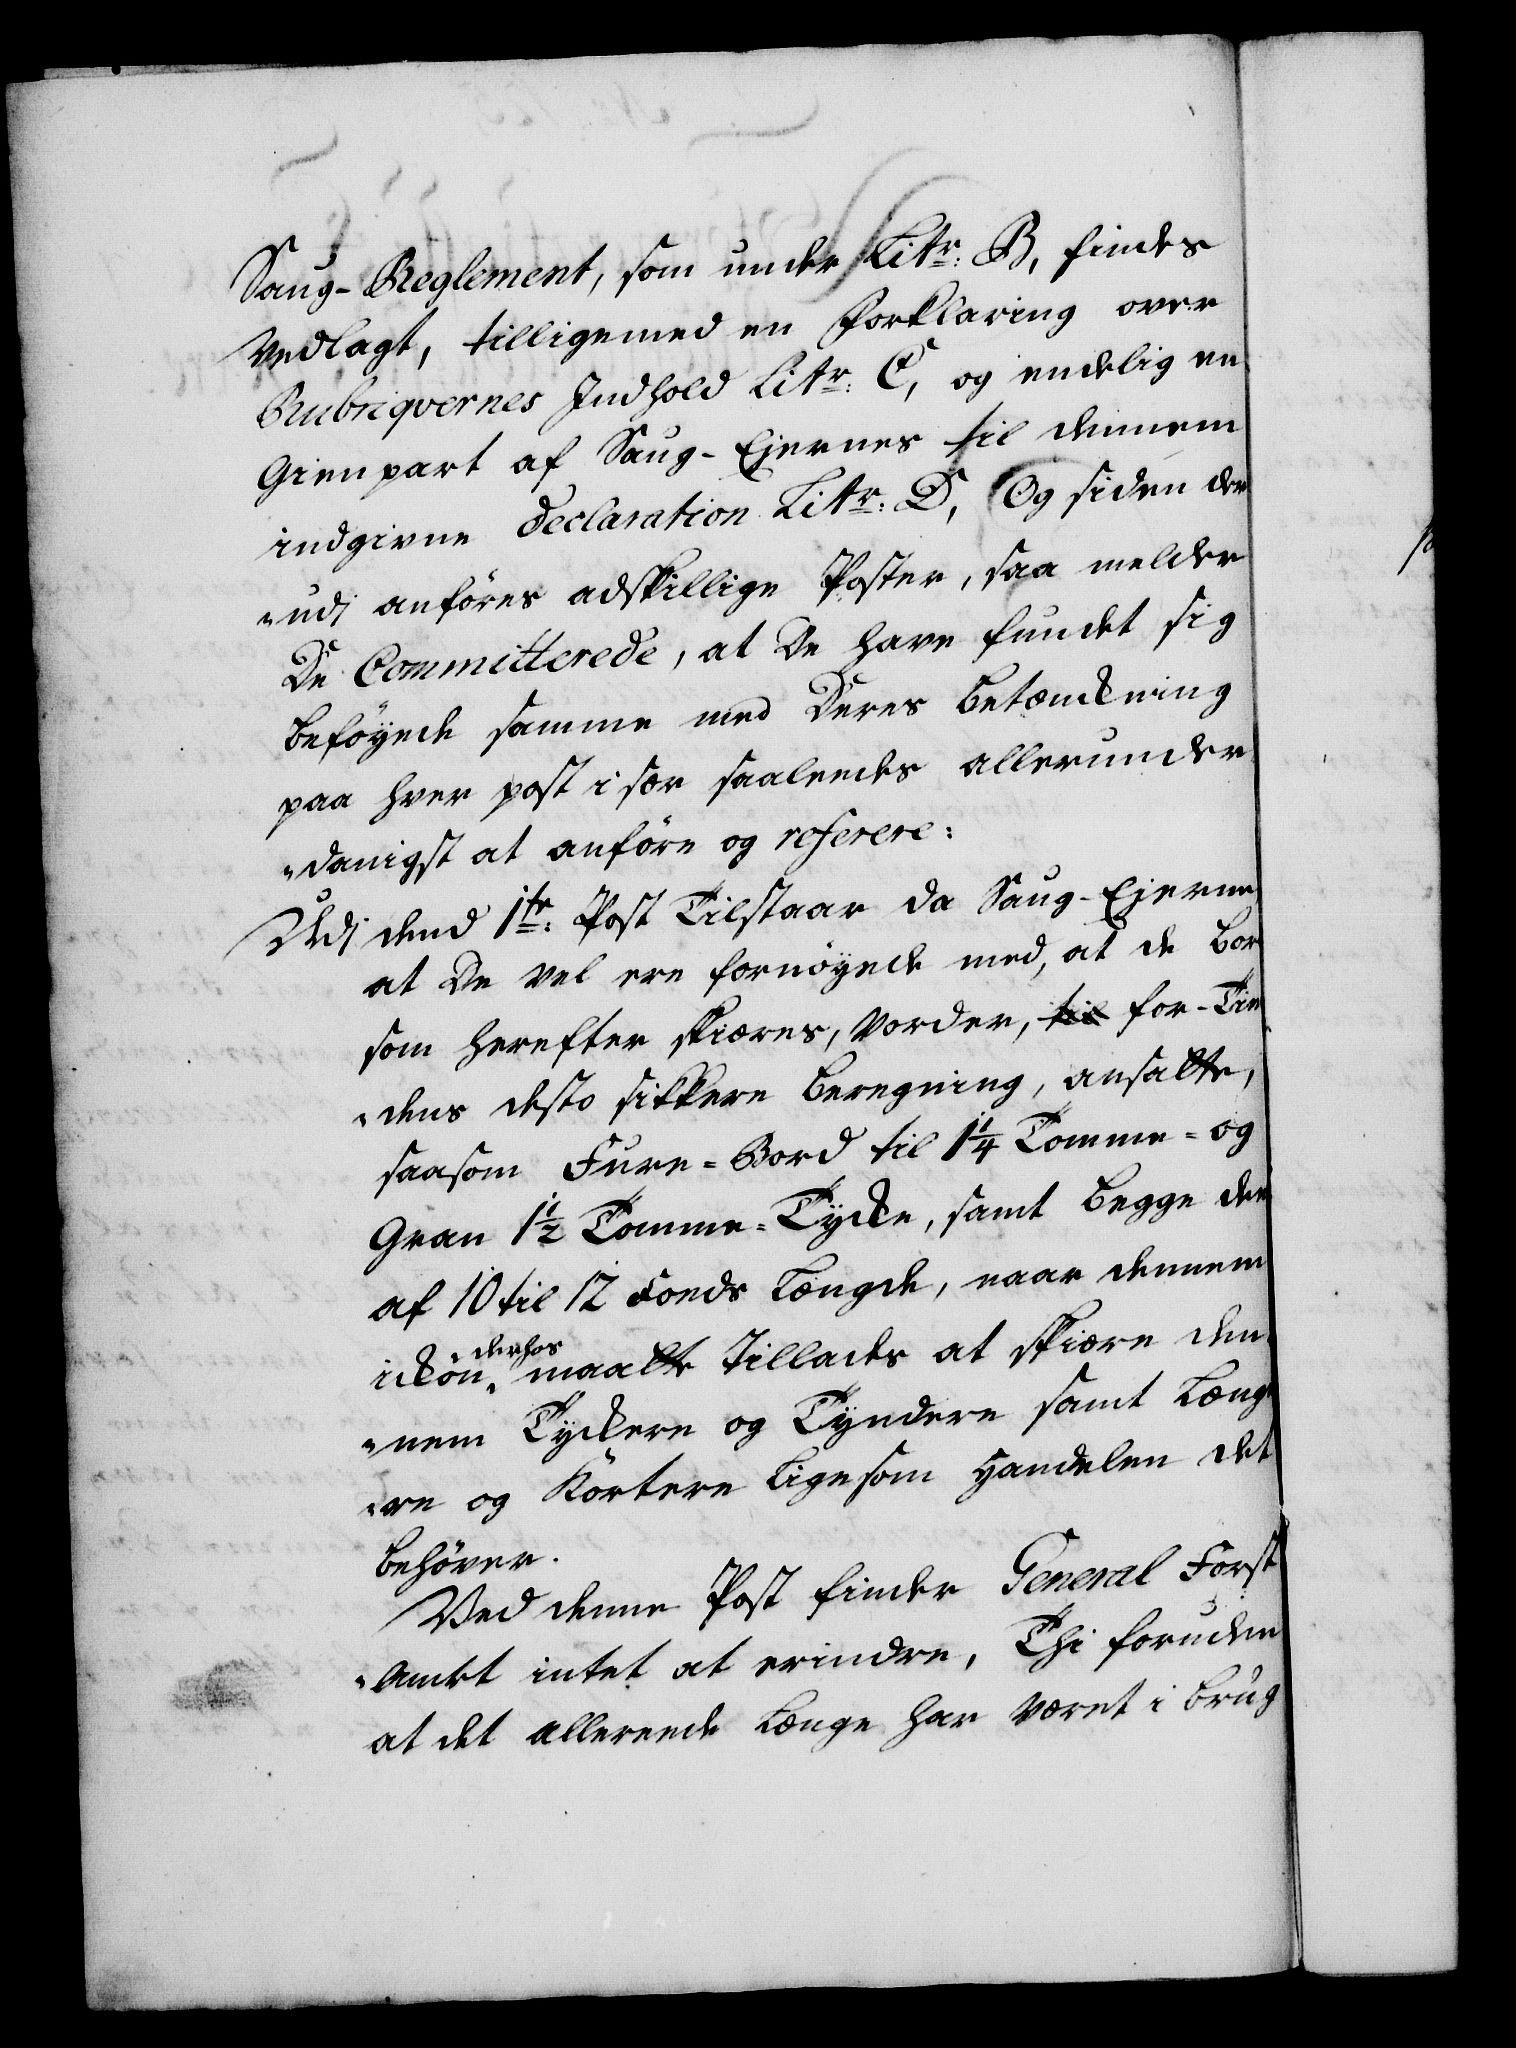 Saug-Reglement, som under Litr: B, findes
Vedlagt, tilligemed en Forklaring over
Rubriqvernes Indhold Litr: C, og endelig en
Gienpart af Saug-Ejernes til dennem
indgivne Declaration Litr: D, Og siden der
"udj anföres adskillige Poster, saa melder
De Committerede, at De have fundet sig
beföyede samme med Deres betænckning
paa hver post i sær saaleedes allerunder
"danigst at anföre og referere:
Udj dend 1te: Post Tilstaar da Saug-Ejerne
at De vel ere fornöyede med, at de bor
som herefter skiæres, vorder, til for-Tien
"dens desto sikkere beregning, ansatte,
saasom Fure-Bord til 1 1/4 Tomme- og
Gran 1 1/2 Tomme-Tycke, samt begge deele
af 10 til 12 Foeds Længde, naar dennem
ickön, derhos maatte Tillades at skiære den
"nem Tyckere og Tyndere samt Læng
"re og Kortere Ligesom Handelen det
behöver.
Ved denne Post finder General Forst
"Amtet intet at erindre, Thi foruden
at det allereede Længe har været i brug